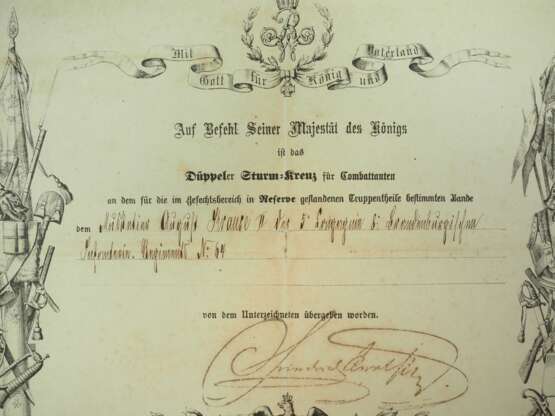 Mit Gott für König und Vaterland
Auf Befehl Seiner Majestät des Königs
ist das
Düppeler Sturm=Kreuz für Combattanten
an dem für die im Gefechtsbereich in Reserve gestandenen Truppentheile bestimmten Bande
dem Füsilier August Krause II der 3 Compagnie 8 Brandenburgischen
Infanterie-Regiments No 64
von dem Unterzeichneten übergeben worden.